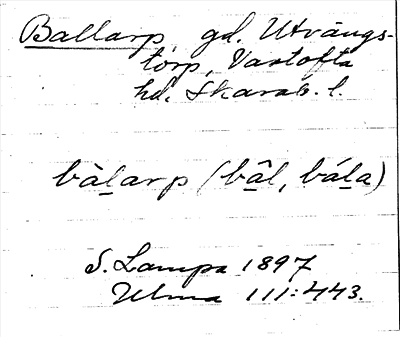 Ballarp, gd. Utvängs-
torp, Vartofta
hd. Skarab. l.
bàḻarp (bâ̱l, báḻa)
S. Lampa 1897
Ulma 111:443.